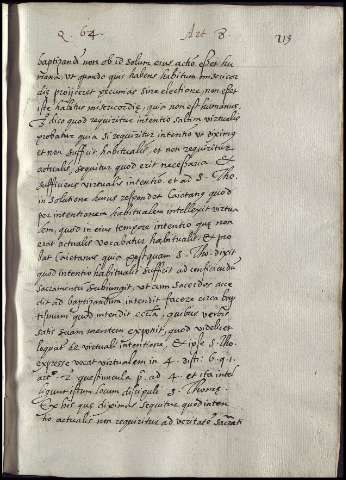 Q. 64. Art 8. 215
baptizandi non ob id solum eius actio esset hu
mana ut quando quis habens habitum misericor
diæ proijceret pecunias sine electione, non esset
iste habitus misericordiæ, quia non est humanus.
dico quod requiritur intentio saltim virtualis
probatur quia si requiritur intentio ut diximus
et non sufficit habitualis, et non requiritur
actualis, sequitur quod erit necessaria et
sufficiens virtualis intentio. et ad S. Tho.
in solutione huius respondet Caietanus quod
per intentionem habitualem intellexit virtua
lem, quod in eius tempore intentio que non
erat actualis vocabatur habitualis. et pro
bat Caietanus quia postquam S. Tho. dixit
quod intentio habitualis sufficit ad conficiendum
sacramentum subiungit, ut cum sacerdos acce
dit ad baptizandum intendit facere circa bap
tismum quod intendit eccla, quibus verbis
satis suam mentem exponit, quod videlicet
loquatur de virtuali intentione, et ipse S. Tho.
expresse vocat virtualem in 4. dist. 6. q. 1.
art. 2. questiuncula p. ad 4. et ita intel
ligunt istum locum discipuli S. Thome.
Ex his que diximus sequitur quod inten
tio actualis non requiritur ad veritatem sacrati